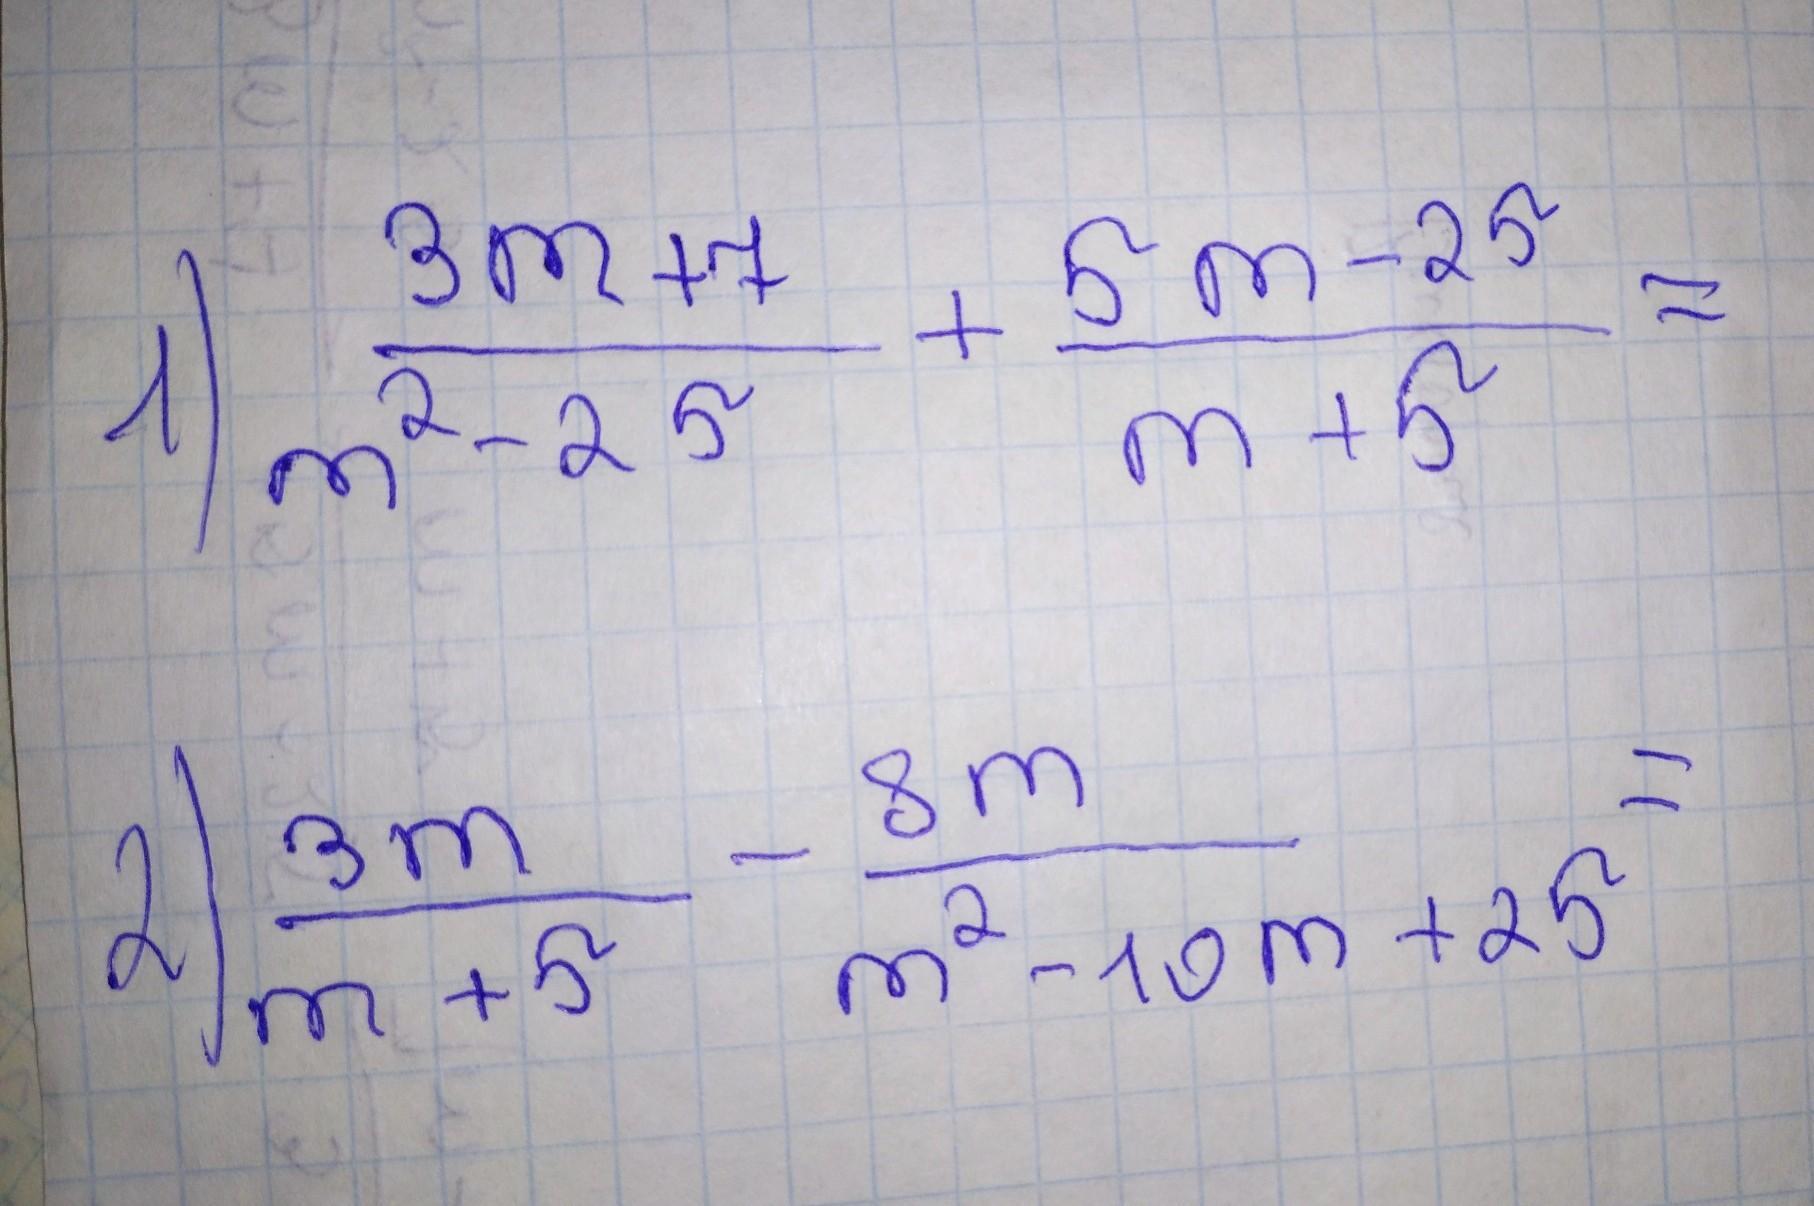 1) (3m+7)/(m²-25) + (5m-25)/(m+5) =
2) 3m/(m+5) - 8m/(m²-10m+25) =